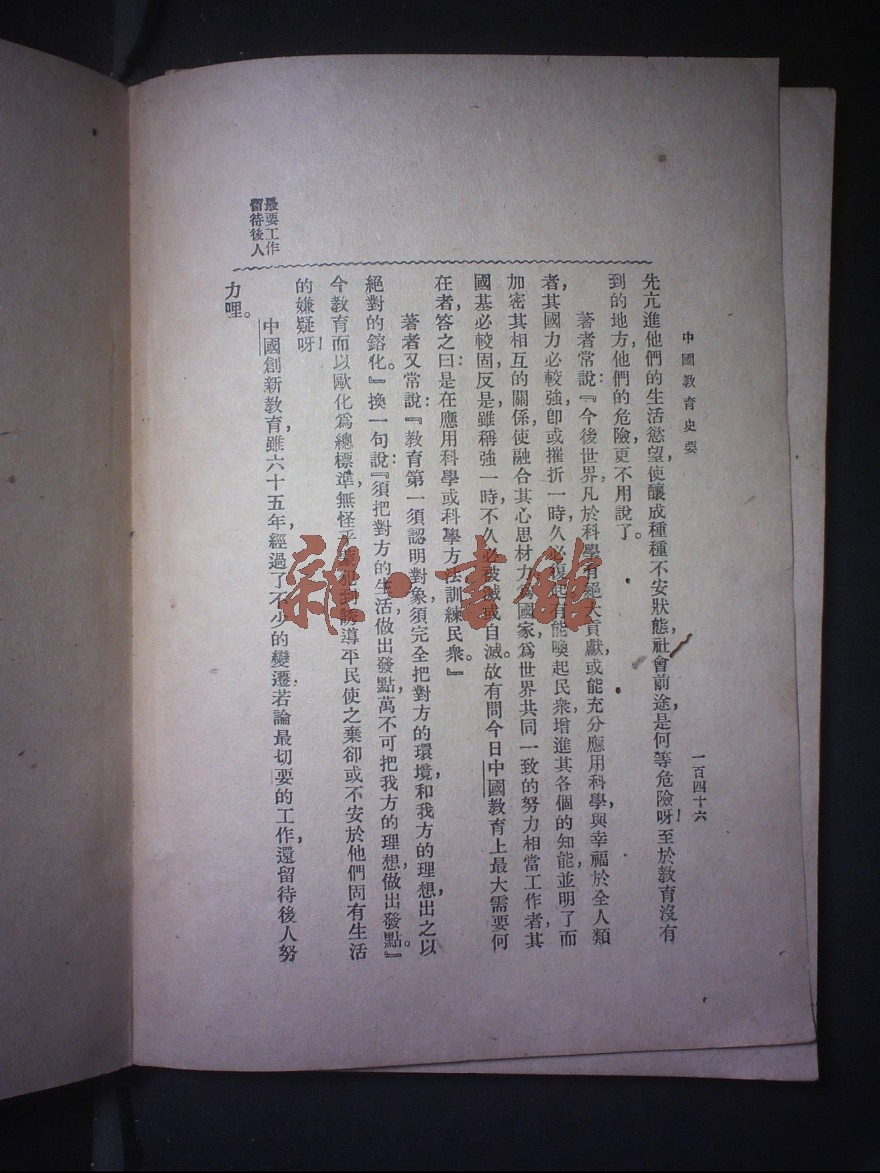 中國敎育史要
一百四十六
先亢進他們的生活慾望，使釀成種種不安狀態，社會前途，是何等危險呀！至於敎育沒有
到的地方，他們的危險更不用說了。
著者常說：『今後世界，凡於科學有絕大貢獻，或能充分應用科學，與幸福於全人類
者，其國力必較強，卽或摧折一時，久必復起。有能喚起民衆，增進其各個的知能，並明了而
加密其相互的關係，使融合其心思材力，爲國家，爲世界共同一致的努力相當工作者，其
國基必較固，反是雖稱強一時，不久必被滅或自滅。故有問今日中國敎育上最大需要何
在者，答之曰：是在應用科學或科學方法訓練民衆。』
著者又常說：『敎育第一須認明對象，須完全把對方的環境，和我方的理想，出之以
絕對的鎔化。』換一句說：『須把對方的生活做出發點，萬不可把我方的理想做出發點。』
今敎育而以歐化爲總標準，無怪乎誘導平民使之棄卻或不安於他們固有生活
的嫌疑呀！
中國創新敎育，雖六十五年，經過了不少的變遷，若論最切要的工作，還留待後人努
力哩。
最要工作
留待後人
雜·書館